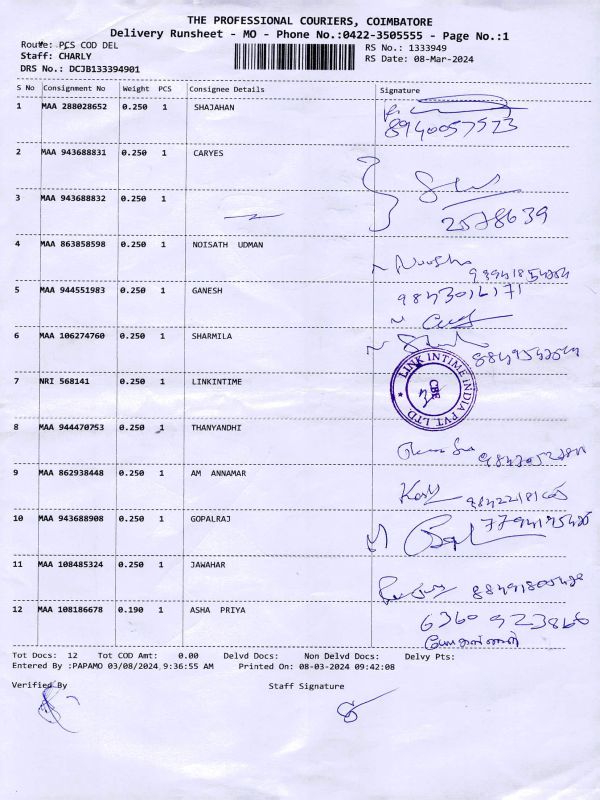 THE PROFESSIONAL COURIERS, COIMBATORE
Delivery Runsheet - MO - Phone No.:0422-3505555 - Page No.:1
Route: PCS COD DEL
RS No.: 1333949
Staff: CHARLY
RS Date: 08-Mar-2024
DRS No.: DCJB133394901
S No Consignment No Weight PCS Consignee Details Signature
1 MAA 288028652 0.250 1 SHAJAHAN
8940057523
2 MAA 943688831 0.250 1 CARYES
3 MAA 943688832 0.250 1
2578639
4 MAA 863858598 0.250 1 NOISATH UDMAN
5 MAA 944551983 0.250 1 GANESH
6 MAA 106274760 0.250 1 SHARMILA
7 NRI 568141 0.250 1 LINKINTIME
LINK INTIME INDIA PVT. LTD.
CBE
8 MAA 944470753 0.250 1 THANYANDHI
9 MAA 862938448 0.250 1 AM ANNAMAR
10 MAA 943688908 0.250 1 GOPALRAJ
11 MAA 108485324 0.250 1 JAWAHAR
12 MAA 108186678 0.190 1 ASHA PRIYA
6360 923866
Tot Docs: 12 Tot COD Amt: 0.00 Delvd Docs: Non Delvd Docs: Delvy Pts:
Entered By :PAPAMO 03/08/2024 9:36:55 AM Printed On: 08-03-2024 09:42:08
Verified By Staff Signature